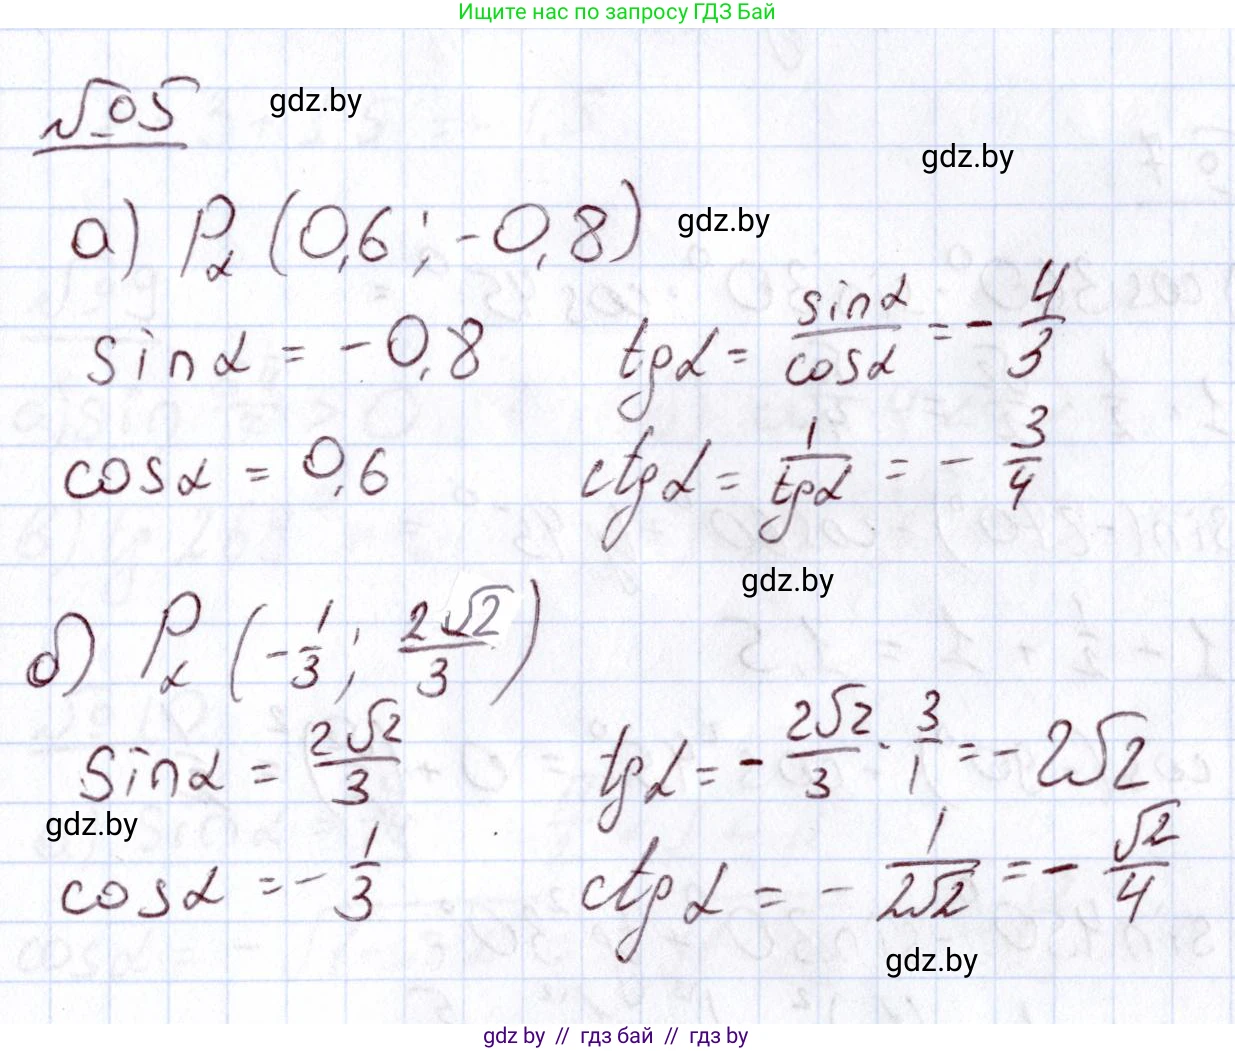 Ищите нас по запросу ГДЗ Бай
№05 gdz.by
gdz.by
а) Pα (0,6 ; -0,8) gdz.by
sinα = -0,8
tgα = sinα/cosα = - 4/3
cosα = 0,6
ctgα = 1/tgα = - 3/4
gdz.by
б) Pα (-1/3 ; 2√2/3)
sinα = 2√2/3
tgα = - 2√2/3 · 3/1 = - 2√2
gdz.by
cosα = - 1/3
ctgα = - 1/2√2 = - √2/4
gdz.by
gdz by // гдз бай // гдз by